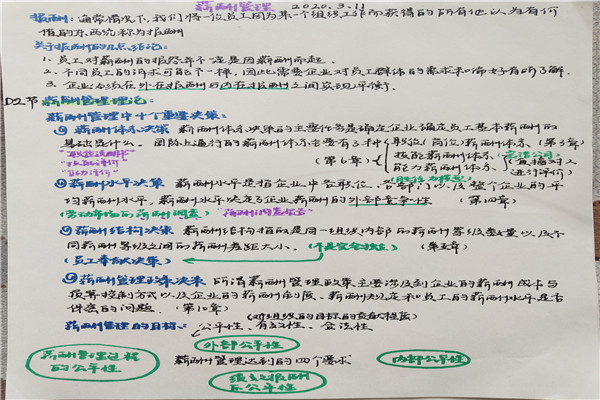 薪酬管理 2020.3.11
报酬：通常情况下，我们将一位员工因为某一个组织工作而获得的所有他认为有价
值的东西统称为报酬
关于报酬的几点结论：
1. 员工对薪酬的抱怨并不一定是因薪酬而起.
2. 不同员工的诉求可能不一样，因此需要企业对员工群体的需求和偏好有所了解.
3. 企业必须在外在报酬与内在报酬之间实现平衡.
D2节 薪酬管理理论：
薪酬管理中十个重要决策：
① 薪酬体系决策 薪酬体系决策的主要任务是确定企业确定员工基本薪酬的
基础是什么。国际上通行的薪酬体系主要有3种 职位/岗位薪酬体系（第3章）
技能薪酬体系
能力薪酬体系
（第6章）
（直接对人
进行评价）
②薪酬水平决策 薪酬水平是指企业中各职位、各部门以及整个企业的平
均薪酬水平，薪酬水平决定了企业薪酬的外部竞争性
③薪酬结构决策 薪酬结构指的是同一组织内部的薪酬等级数量以及不
同薪酬等级之间的薪酬差距大小。
④薪酬管理政策决策 所谓薪酬管理政策主要涉及到企业的薪酬成本与
预算控制方式以及企业的薪酬制度、薪酬规定和员工的薪酬水平是否
保密的问题.（第10章）
（对组织的目标的贡献程度）
薪酬管理的目标：公平性、有效性、合法性
外部公平性
薪酬管理过程
的公平性
薪酬管理达到的四个要求
内部公平性
绩效报酬
的公平性